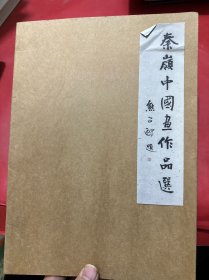 秦嶺中國畫作品選